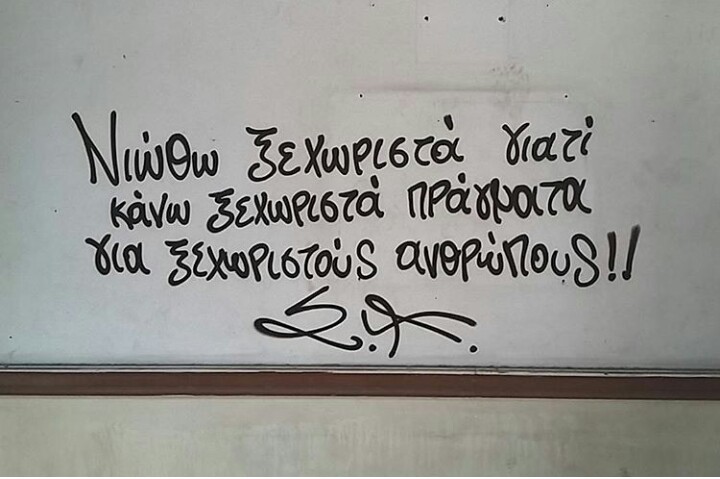 Νιώθω ξεχωριστά γιατί
κάνω ξεχωριστά πράγματα
για ξεχωριστούς ανθρώπους!!